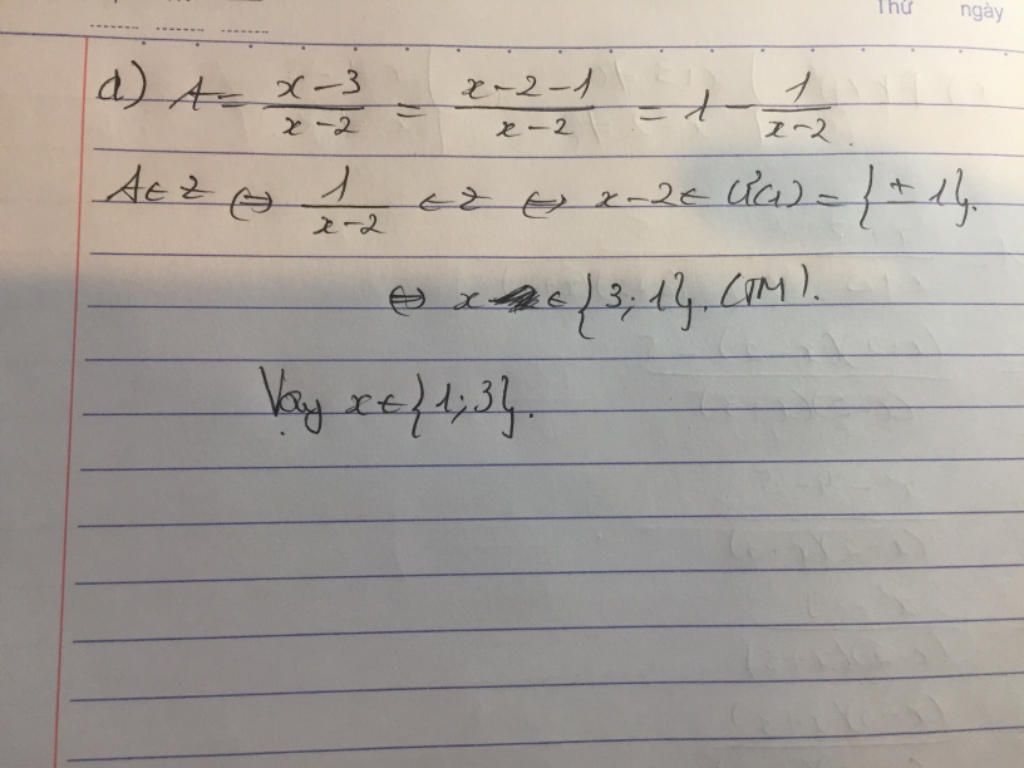 Thứ ngày
d) A = \frac{x-3}{x-2} = \frac{x-2-1}{x-2} = 1 - \frac{1}{x-2}.
A ∈ Z ⇔ \frac{1}{x-2} ∈ Z ⇔ x-2 ∈ Ư(1) = {± 1}.
⇔ x ∈ {3; 1}. (TM).
Vậy x ∈ {1; 3}.